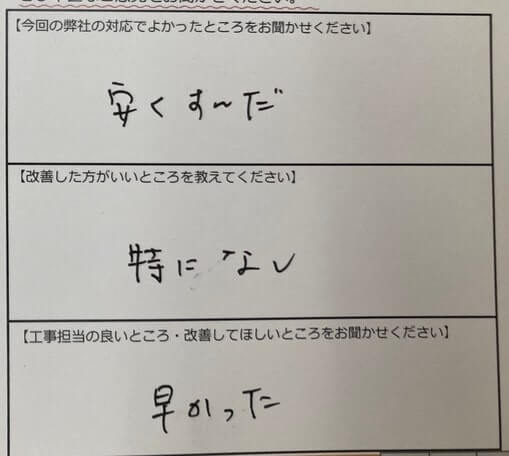 【今回の弊社の対応でよかったところをお聞かせください】
安くすんだ
【改善した方がいいところを教えてください】
特になし
【工事担当の良いところ・改善してほしいところをお聞かせください】
早かった